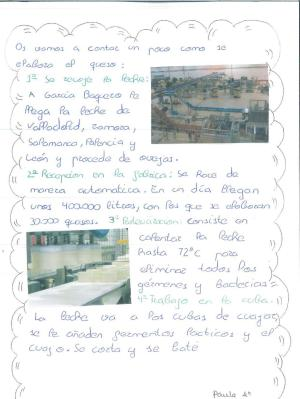 Os vamos a contar un poco como se
elabora el queso:
1º Se recoge la leche:
A García Baquero le
llega la leche de
Valladolid, Zamora,
Salamanca, Palencia y
León y procede de ovejas.
2ª Recepcion en la fábrica: Se hace de
manera automatica. En un día llegan
unos 400.000 litros, con los que se elaboran
30.000 quesos. 3º Pasteurizacion: Consiste en
calentar la leche
hasta 72ºC para
eliminar todos los
gérmenes y bacterias.
4º Trabajo en la cuba:
La leche va a las cubas de cuajar
se le añaden fermentos lacticos y el
cuajo. Se corta y se bate
Paula 4º